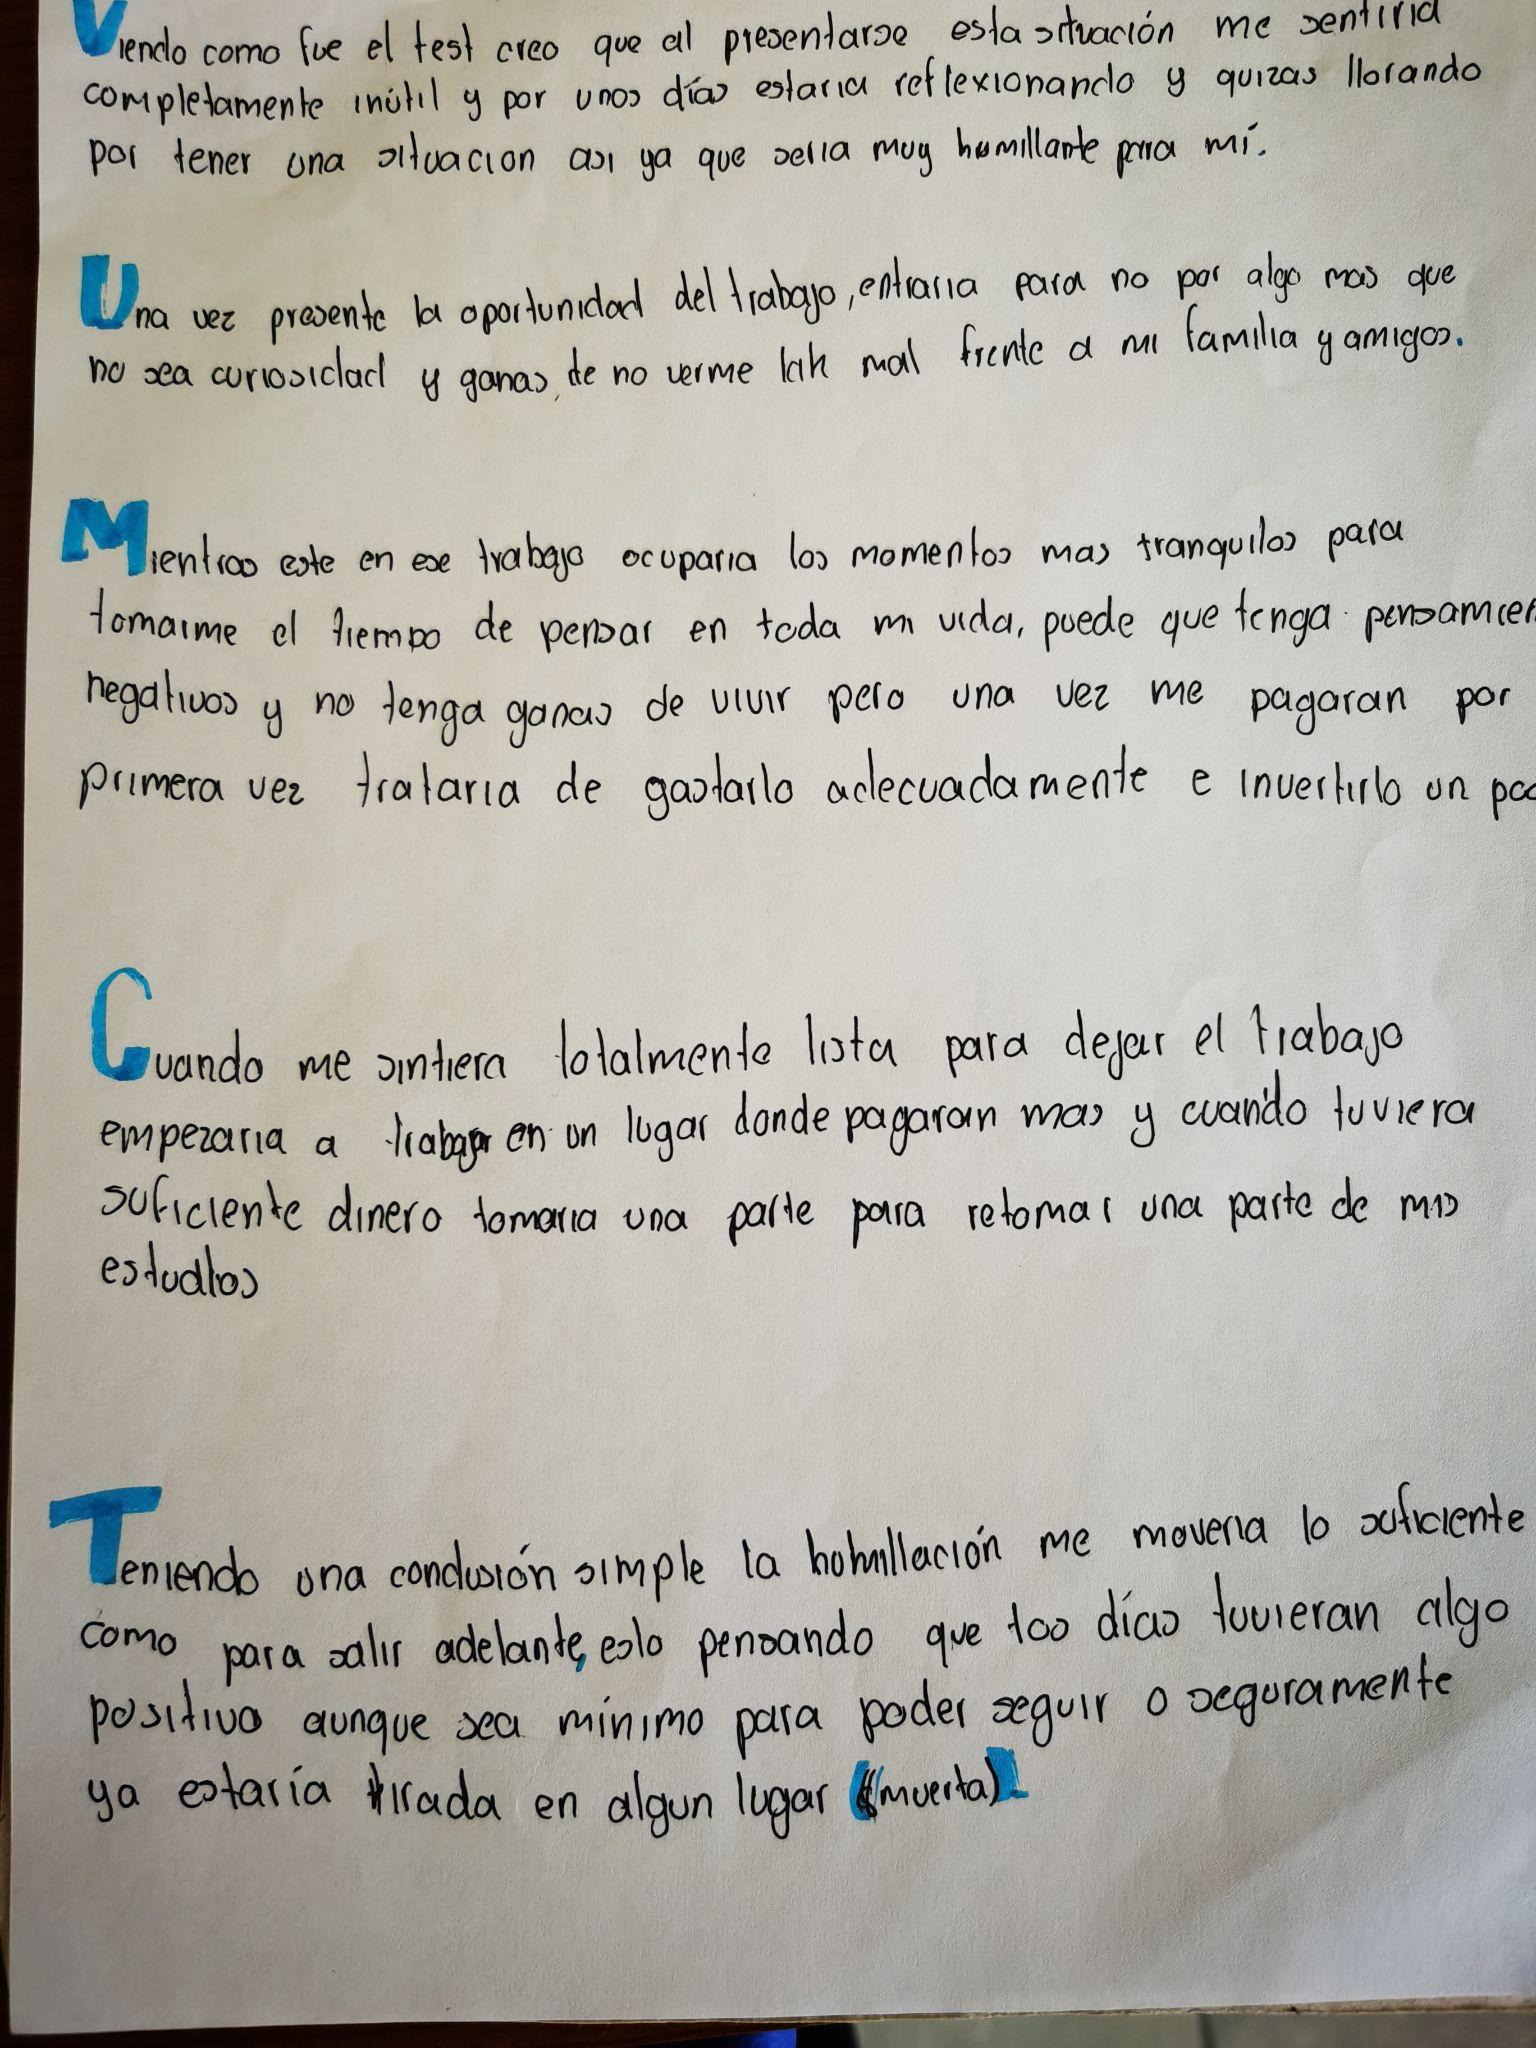 Viendo como fue el test creo que al presentarse esta situación me sentiria
completamente inútil y por unos días estaria reflexionando y quizas llorando
por tener una situacion asi ya que seria muy humillante para mí.
Una vez presente la oportunidad del trabajo, entraria para no por algo mas que
no sea curiosidad y ganas de no verme tan mal frente a mi familia y amigos.
Mientras este en ese trabajo ocuparia los momentos mas tranquilos para
tomarme el tiempo de pensar en toda mi vida, puede que tenga pensamien
negativos y no tenga ganas de vivir pero una vez me pagaran por
primera vez trataria de gastarlo adecuadamente e invertirlo un poc
Cuando me sintiera totalmente lista para dejar el trabajo
empezaria a trabajar en un lugar donde pagaran mas y cuando tuviera
suficiente dinero tomaria una parte para retomar una parte de mis
estudios
Teniendo una conclusión simple la humillación me moveria lo suficiente
como para salir adelante, esto pensando que los días tuvieran algo
positivo aunque sea mínimo para poder seguir o seguramente
ya estaría tirada en algun lugar (muerta).